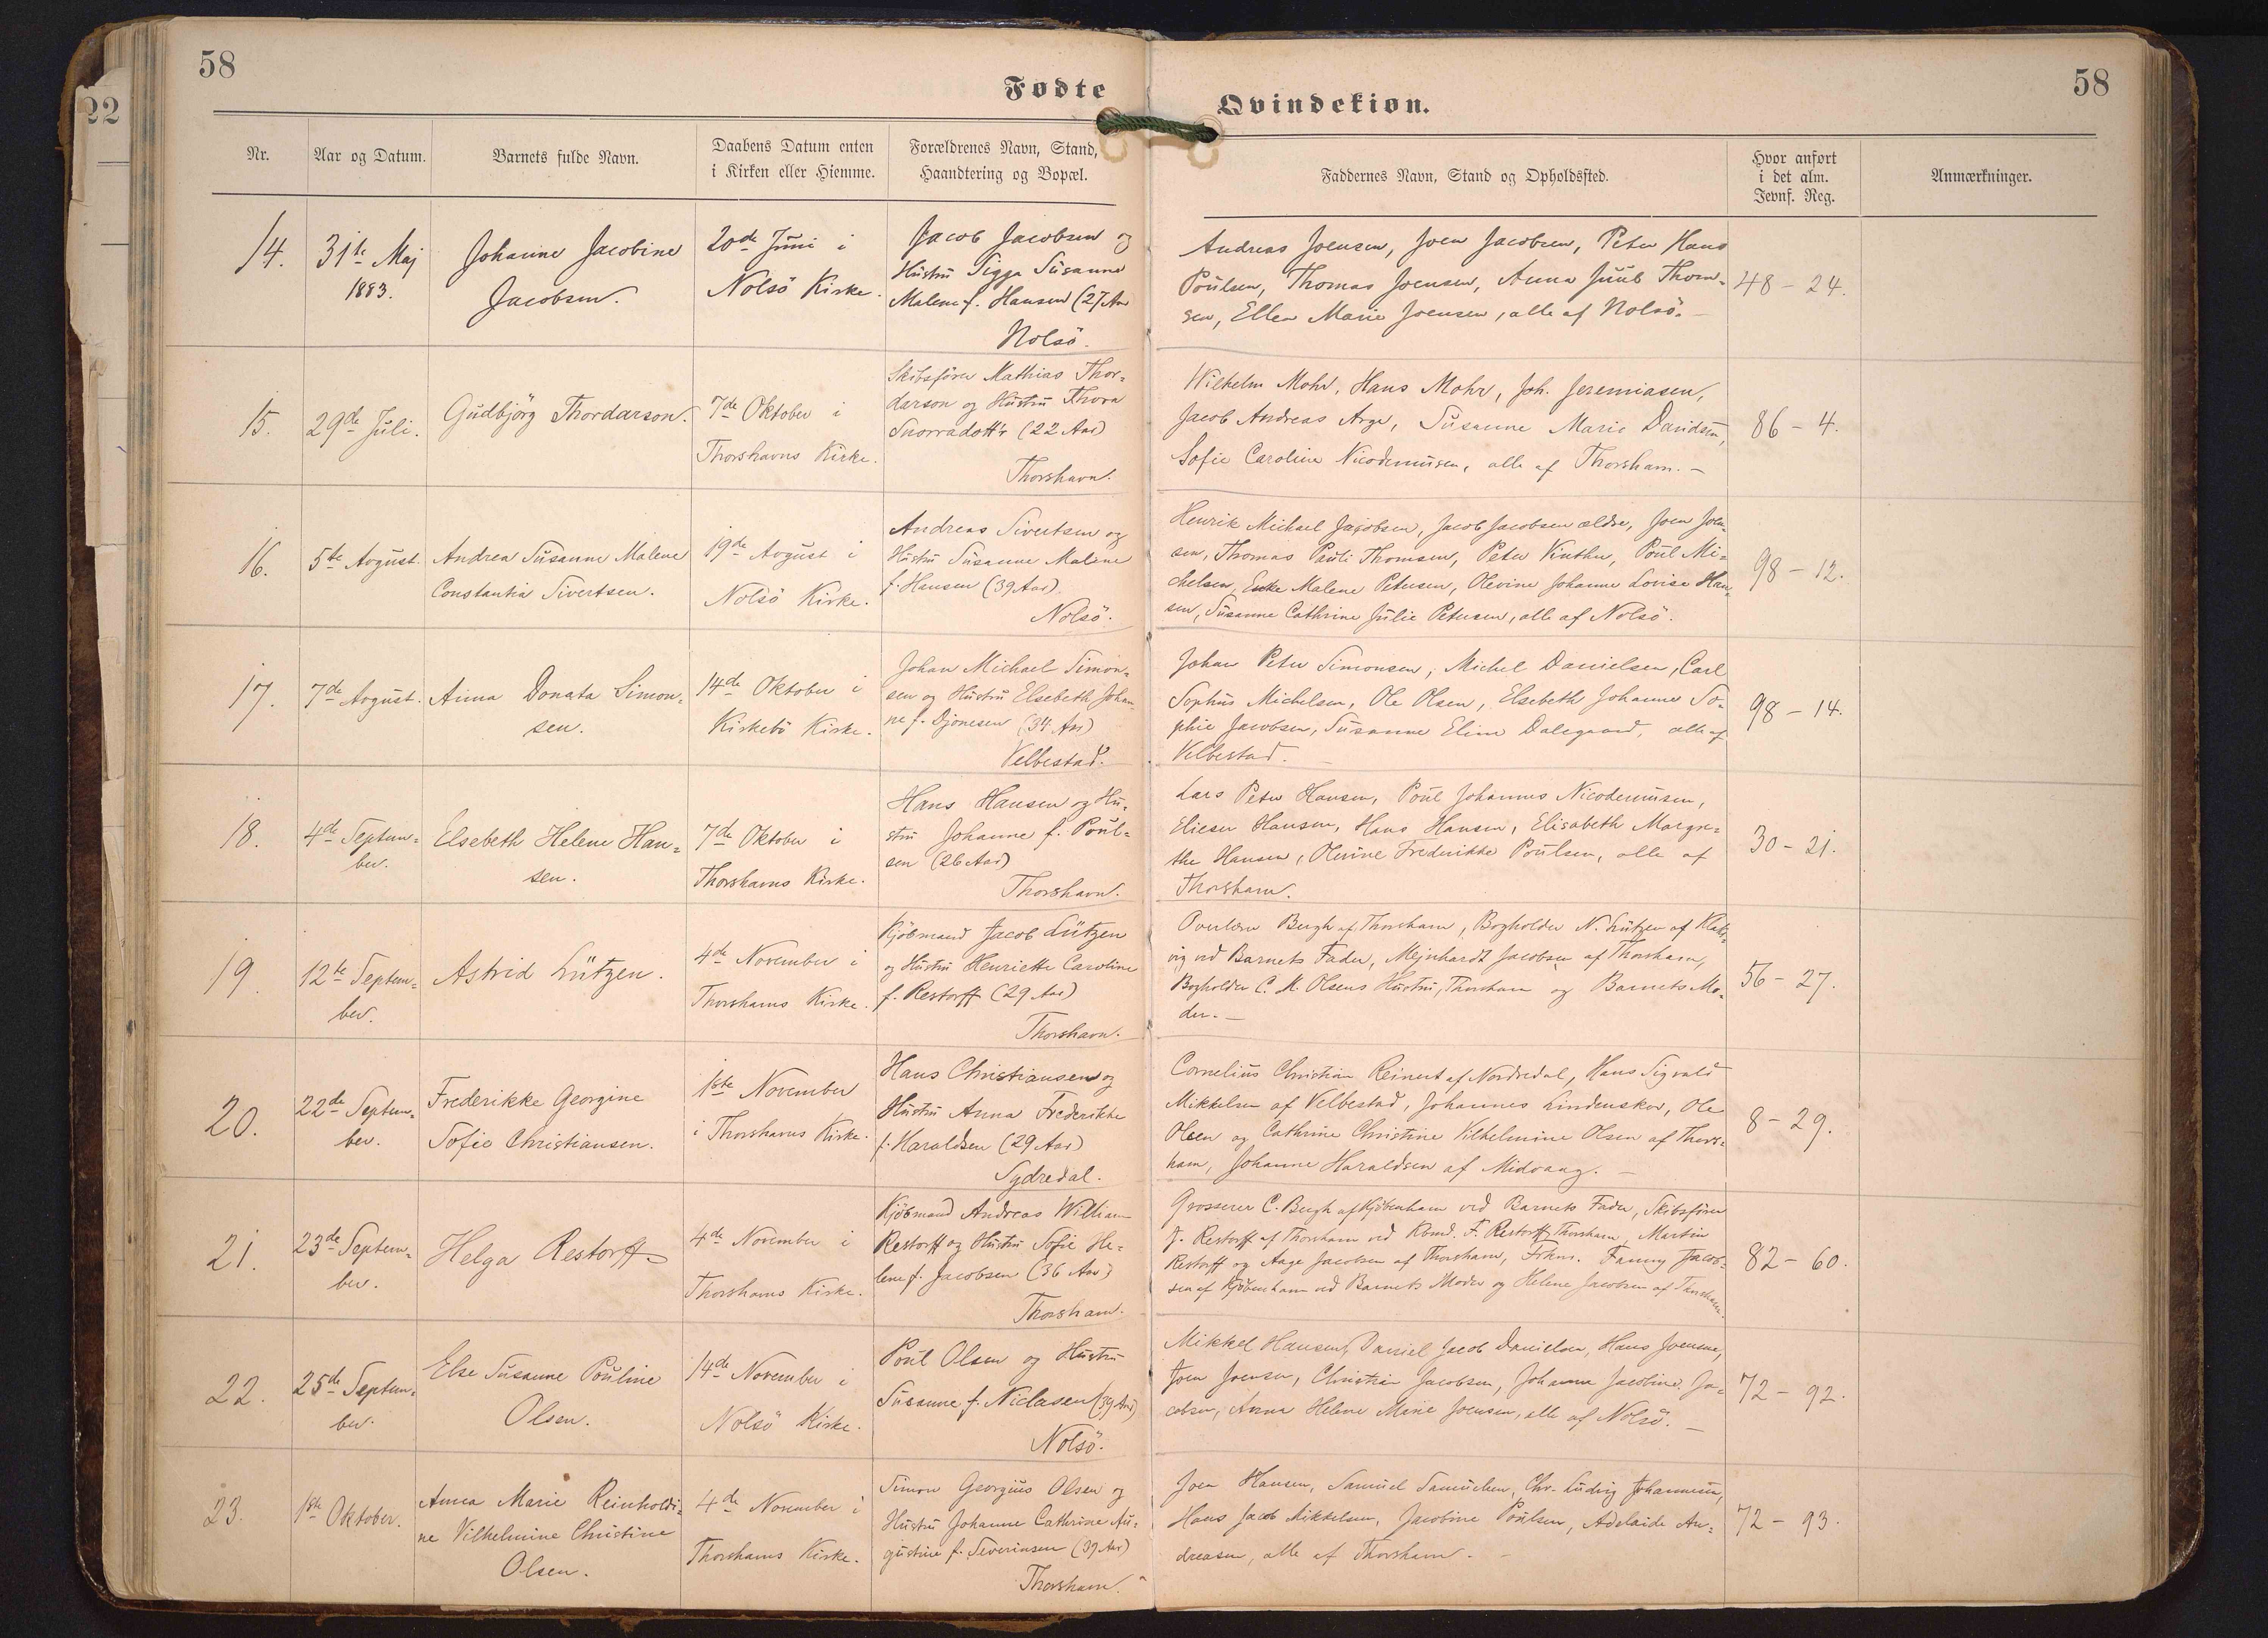 58
58
22
Fødte
Qvindekiøn.
Nr.
Aar og Datum.
Barnets fulde Navn.
Daabens Datum enten
i Kirken eller Hiemme.
Forældrenes Navn, Stand,
Haandtering og Bopæl.
Faddernes Navn, Stand og Opholdssted.
Hvor anført
i det alm.
Jevnf. Reg.
Anmærkninger.
14.
31te Maj
1883.
Johanne Jacobine
Jacobsen.
20de Juni i
Nolsö Kirke.
Jacob Jacobsen og
Hustru Sigga Susanne
Malene f. Hansen (27 Aar
Nolsö.
Andreas Joensen, Joen Jacobsen, Peter Hans
Poulsen, Thomas Joensen, Anna Juul Thom-
sen, Ellen Marie Joensen, alle af Nolsö.
48 - 24.
15.
29de Juli.
Gudbjörg Thordarson.
7de Oktober i
Thorshavns Kirke.
Skibsförer Mathias Thor-
darson og Hustru Thora
Snorradott'r (22 Aar)
Thorshavn.
Wilhelm Mohr, Hans Mohr, Joh. Jeremiasen,
Jacob Andreas Arge, Susanne Marie Davidsen,
Sofie Caroline Nicodemusen, alle af Thorshavn. -
86 - 4.
16.
5te August.
Andrea Susanne Malene
Constantia Sivertsen.
19de August i
Nolsö Kirke.
Andreas Sivertsen og
Hustru Susanne Malene
f. Hansen (39 Aar).
Nolsö.
Henrik Michael Jacobsen, Jacob Jacobsen ældre, Joen Joen-
sen, Thomas Pauli Thomsen, Peter Vinther, Poul Mi-
chelsen, Enke Malene Petersen, Olevine Johanne Lovise Han-
sen, Susanne Cathrine Julie Petersen, alle af Nolsö.
98 - 12.
17.
7de August.
Anna Donata Simon-
sen.
14de Oktober i
Kirkebö Kirke.
Johan Michael Simon-
sen og Hustru Elsebeth Johan-
ne f. Djonesen (34 Aar)
Velbestad.
Johan Peter Simonsen, Michel Danielsen, Carl
Sophus Michelsen, Ole Olsen, Elsebeth Johanne So-
phie Jacobsen, Susanne Eline Dalsgaard, alle af
Velbestad.
98 - 14.
18.
4de Septem-
ber.
Elsebeth Helene Han-
sen.
7de Oktober i
Thorshavns Kirke.
Hans Hansen og Hu-
stru Johanne f. Poul-
sen (26 Aar)
Thorshavn.
Lars Peter Hansen, Poul Johannes Nicodemusen,
Elieser Hansen, Hans Hansen, Elisabeth Margre-
the Hansen, Olevine Frederikke Poulsen, alle af
Thorshavn.
30 - 21.
19.
12te Septem-
ber.
Astrid Lützen.
4de November i
Thorshavns Kirke.
Kjöbmand Jacob Lützen
og Hustru Henriette Caroline
f. Restorff (29 Aar)
Thorshavn.
Overlærer Bergh af Thorshavn, Bogholder N. Lützen af Klaks-
vig ved Barnets Fader, Mejnhardt Jacobsen af Thorshavn,
Bogholder C. M. Olsens Hustru, Thorshavn og Barnets Mo-
der. -
56 - 27.
20.
22de Septem-
ber.
Frederikke Georgine
Sofie Christiansen.
1ste November
i Thorshavns Kirke.
Hans Christiansen og
Hustru Anna Frederikke
f. Haraldsen (29 Aar)
Sydredal.
Cornelius Christian Reinert af Nordredal, Hans Sigvald
Mikkelsen af Velbestad, Johannes Lindenskov, Ole
Olsen og Cathrine Christine Vilhelmine Olsen af Thors-
havn, Johanne Haraldsen af Midvaag. -
8 - 29.
21.
23de Septem-
ber.
Helga Restorff
4de November i
Thorshavns Kirke.
Kjöbmand Andreas William
Restorff og Hustru Sofie He-
lene f. Jacobsen (36 Aar)
Thorshavn.
Grosserer C. Bergh af Kjöbenhavn ved Barnets Fader, Skibsförer
J. Restorff af Thorshavn ved Kbmd. F. Restorff Thorshavn, Martin
Restorff og Aage Jacobsen af Thorshavn, Frkn. Fanny Jacob-
sen af Kjöbenhavn ved Barnets Moder og Helene Jacobsen af Thorshavn.
82 - 60.
22.
25de Septem-
ber.
Else Susanne Pouline
Olsen.
14de November i
Nolsö Kirke.
Poul Olsen og Hustru
Susanne f. Niclasen (39 Aar)
Nolsö.
Mikkel Hansen, Daniel Jacob Danielsen, Hans Joensen,
Joen Joensen, Christian Jacobsen, Johanna Jacobine Ja-
cobsen, Anna Helene Marie Joensen, alle af Nolsö. -
72 - 92.
23.
1ste Oktober.
Anna Marie Reinholdi-
ne Vilhelmine Christine
Olsen.
4de November i
Thorshavns Kirke.
Simon Georgius Olsen og
Hustru Johanne Cathrine Au-
gustine f. Severinsen (39 Aar)
Thorshavn.
Joen Hansen, Samuel Samuelsen, Chr. Ludvig Johannesen,
Hans Jacob Mikkelsen, Jacobine Poulsen, Adelaide An-
dreasen, alle af Thorshavn. -
72 - 93.